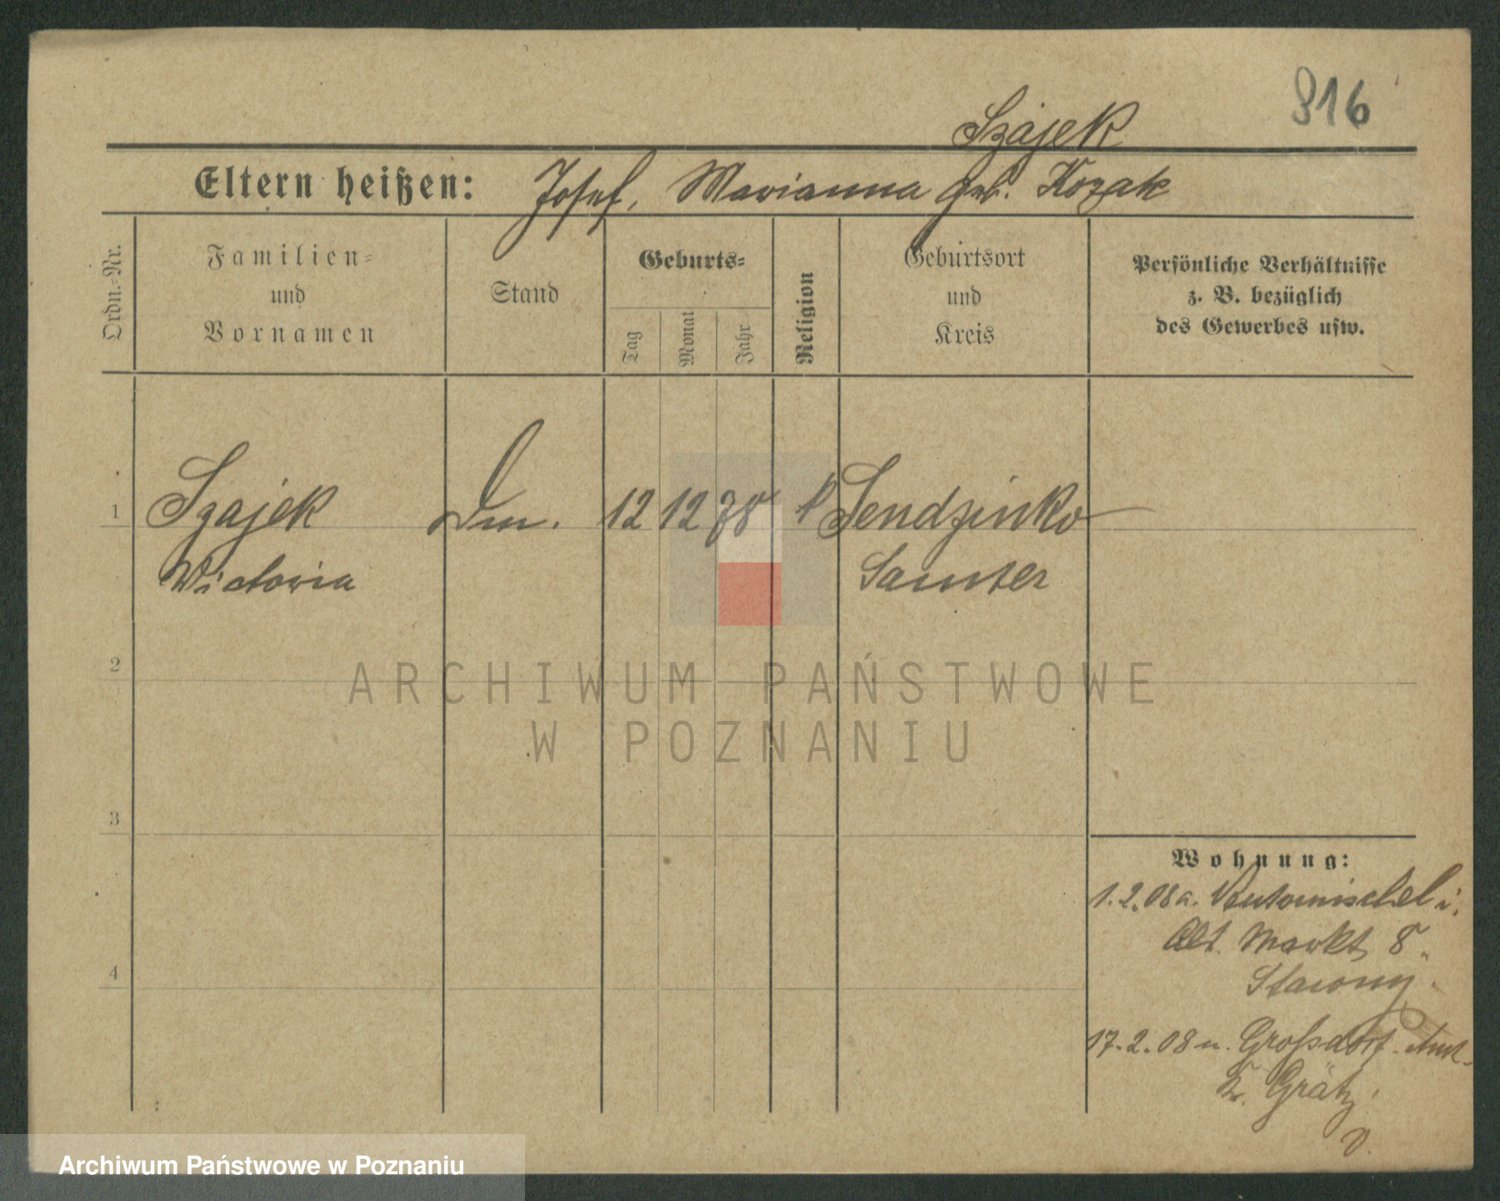 816
Szajek
Eltern heißen: Josef, Marianna geb. Kozak
Ordn.-Nr.
Familien-
und
Vornamen
Stand
Geburts-
Tag
Monat
Jahr
Religion
Geburtsort
und
Kreis
Persönliche Verhältnisse
z. B. bezüglich
des Gewerbes usw.
1 Szajek Dm. 12 12 78 k Sendzinko
Wictoria Samter
2
3
4
ARCHIWUM PAŃSTWOWE
W POZNANIU
Wohnung:
1.2.08 a. Neutomischel i.
Alt. Markt 8
17.2.08 n. Grofsdorf
Kr. Grätz.
Archiwum Państwowe w Poznaniu